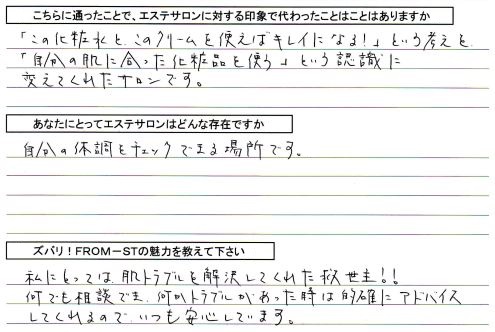 こちらに通ったことで、エステサロンに対する印象で代わったことはことはありますか
「この化粧水と、このクリームを使えばキレイになる!」という考えを、
「自分の肌に合った化粧品を使う」という認識に
変えてくれたサロンです。
あなたにとってエステサロンはどんな存在ですか
自分の体調をチェックできる場所です。
ズバリ!FROM－STの魅力を教えて下さい
私にとっては、肌トラブルを解決してくれた救世主!!
何でも相談でき、何かトラブルがあった時は的確にアドバイス
してくれるので、いつも安心しています。